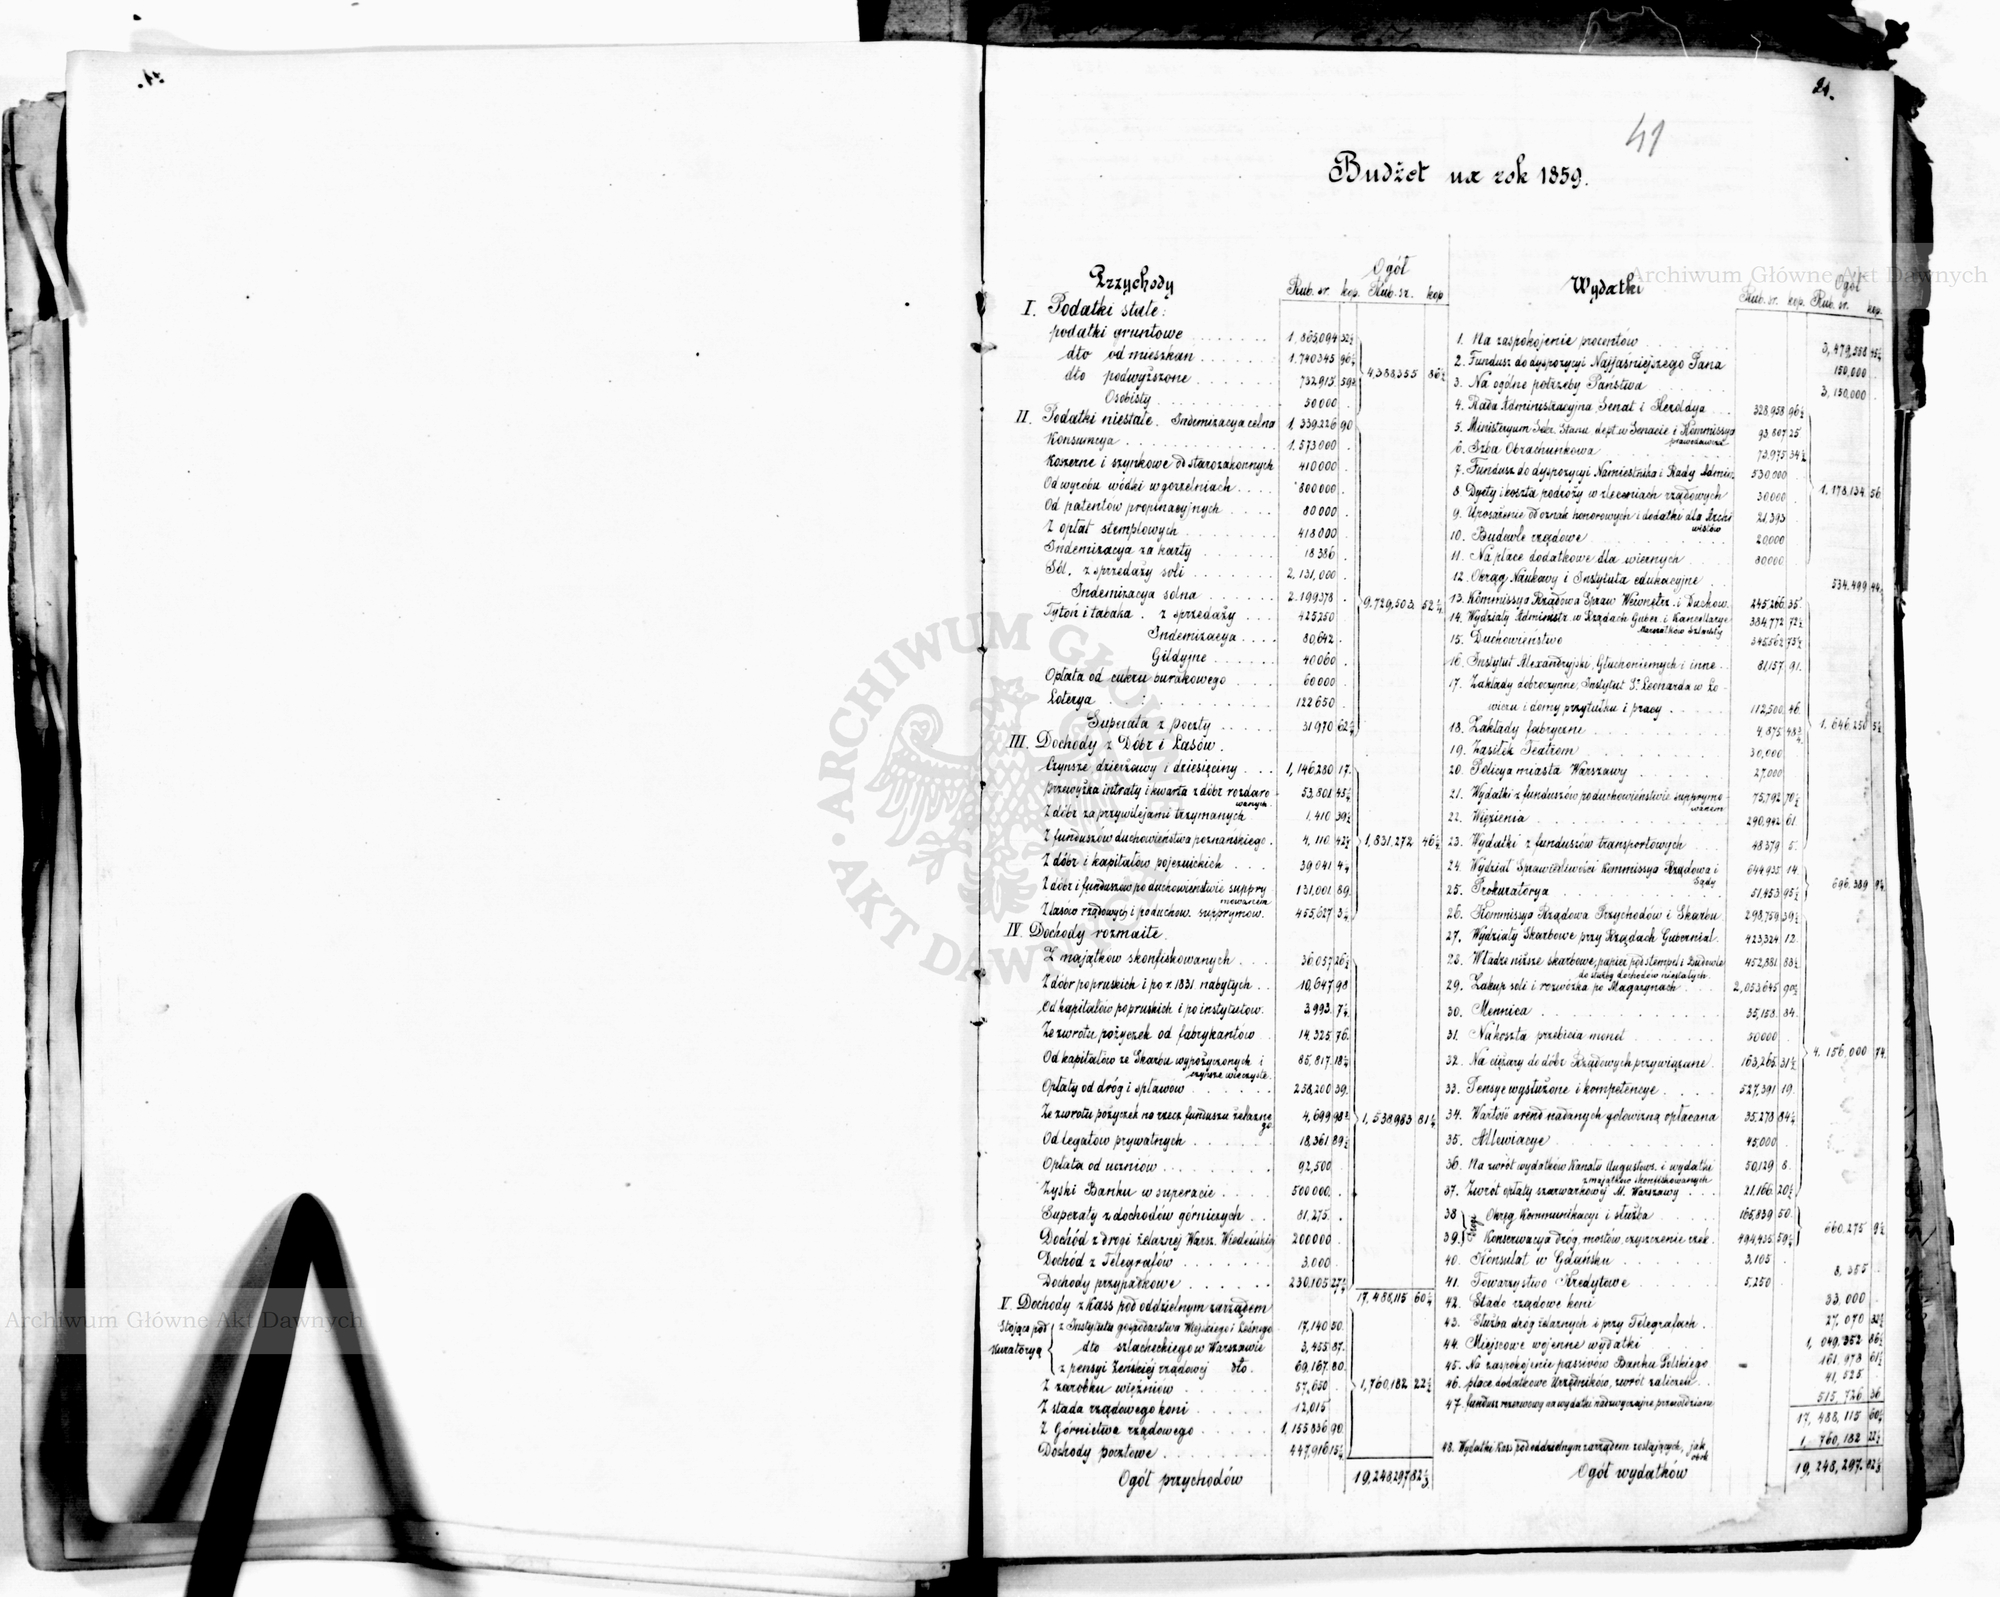 21.
41
Budżet na rok 1859.
Przychody
Rub. sr. kop.
Ogół
Rub. sr. kop
I. Podatki stałe:
podatki gruntowe 1,865,094 32½
dto od mieszkań 1.740345 96½
dto podwyższone 732915 59½
Osobisty 50000
4,388,355 86½
II. Podatki niestałe. Indemizacya celna 1,339,226 90
Konsumcya 1,573000
Koszerne i szynkowe od starozakonnych 410000
Od wyrobu wódki w gorzelniach 800000
Od patentów propinacyjnych 80000
Z opłat stemplowych 418000
Indemizacya za karty 18386
Sól. z sprzedaży soli 2,131,000
Indemizacya solna 2.199378
Tytoń i tabaka. z sprzedaży 425250
Indemizacya 80,642
Gildyjne 40060
Opłata od cukru burakowego 60000
Loterya 122650
Superata z poczty 31970 62¼
9.729,503 52¼
III. Dochody z Dóbr i Lasów.
Czynsze dzierżawy i dziesięciny 1,146,280 17.
przewyżka intraty i kwarta z dóbr rozdaro
wanych 53,801 45¼
Z dóbr za przywilejami trzymanych 1,410 39½
Z funduszów duchowieństwa poznańskiego 4,110 42½
Z dóbr i kapitałów pojezuickich 39041 4¼
Z dóbr i funduszów po duchowieństwie suppry
mowanem 131,001 89.
Z lasów rządowych i po duchow. supprymow. 455,627 3¼
1,831,272 46½
IV. Dochody rozmaite.
Z majątków skonfiskowanych 36,057 26½
Z dóbr popruskich i po r. 1831 nabytych 10,647 98
Od kapitałów popruskich i po instytutów. 3993 7½
Ze zwrotu pożyczek od fabrykantów 14,325 76.
Od kapitałów ze Skarbu wypożyczonych i
czynsze wieczyste 85,817 18¼
Opłaty od dróg i spławów 258,200 39.
Ze zwrotu pożyczek na rzecz funduszu żelazne
go 4,699 98¾
Od legatów prywatnych 18,361 89½
Opłata od uczniów 92,500
Zyski Banku w superacie 500000.
Superaty z dochodów górniczych 81,275
Dochód z drogi żelaznej Warsz. Wiedeńskiej 200000
Dochód z Telegrafów 3.000
Dochody przypadkowe 230,105 27¼
1,538983 81¼
17,488,115 60¼
V. Dochody z Kass pod oddzielnym zarządem
Stojące pod
Kuratoryą
z Instytutu gospodarstwa Wiejskiego i Leśnego 17,140 50.
dto szlacheckiego w Warszawie 3,455 87.
z pensyi Żeńskiéj rządowej dto. 69,167 80.
Z zarobku więźniów 57,650
Z stada rządowego koni 12,015
Z Górnictwa rządowego 1,155836 90.
Dochody pocztowe 447,916 15¼
1,760,182 22¼
Ogół przychodów 19,248297 82½
Wydatki
Rub. sr. kop.
Ogół
Rub. sr. kop.
1. Na zaspokojenie procentów 3,479,558 45½
2. Fundusz do dyspozycyi Najjaśniejszego Pana 150,000
3. Na ogólne potrzeby Państwa 3,150,000
4. Rada Administracyjna, Senat i Heroldya 328,958 96½
5. Ministeryum Sekr. Stanu, dept. w Senacie i Kommissya
prawodawcza 93807 25
6. Izba Obrachunkowa 73,975 34½
7. Fundusz do dyspozycyi Namiestnika i Rady Admin. 530000
8. Dyety i koszta podróży w zleceniach rządowych 30000
9. Uposażenie od oznak honorowych i dodatki dla Archi
wistów 21,393
10. Budowle rządowe 20000
11. Na płace dodatkowe dla wiernych 80000
1,178,134 56
12. Okrąg Naukowy i Instytuta edukacyjne 534,499 44
13. Kommissya Rządowa Spraw Wewnętrz. i Duchow. 245266 35.
14. Wydziały Administr. w Rządach Guber. i Kancellarye
Marszałków Szlachty 384772 72½
15. Duchowieństwo 345562 73½
16. Instytut Alexandryjski, Głuchoniemych i inne 81,157 91.
17. Zakłady dobroczynne, Instytut Sr Leonarda w Ło-
wiczu i domy przytułku i pracy 112,500 46.
18. Zakłady fabryczne 4,875 48¾
19. Zasiłek Teatrom 30,000
20. Policya miasta Warszawy 27,000
21. Wydatki z funduszów po duchowieństwie supprymo
wanem 75,792 70½
22. Więzienia 290,942 61
23. Wydatki z funduszów transportowych 48379 5
1,646,250 5½
24. Wydział Sprawiedliwości Kommissya Rządowa i
Sądy 644935 14
25. Prokuratorya 51,453 95½
696,389 9½
26. Kommissya Rządowa Przychodów i Skarbu 298,759 39½
27. Wydziały Skarbowe przy Rządach Gubernial. 423,324 12
28. Władze niższe skarbowe, papier pod stempel i Budowle
do służby dochodów niestałych 452,881 88½
29. Zakup soli i rozwózka po Magazynach 2,053645 90½
30. Mennica 35,158 84.
31. Na koszta przebicia monet 50000
32. Na ciężary do dóbr Rządowych przywiązane 163,265 31½
33. Pensye wysłużone i kompetencye 527,391 19.
34. Wartość arend nadanych gotowizną opłacana 35,278 84½
35. Allewiacye 45,000
36. Na zwrót wydatków Kanału Augustows. i wydatki
z majątków skonfiskowanych 50,129 8
37. Zwrót opłaty szarwarkowej M. Warszawy 21,166 20½
4,156,000 74.
38. Okręg Kommunikacyi i służba 165,839 50.
39. Konserwacya dróg, mostów, czyszczenie rzek 494,435 59½
660,275 9½
40. Konsulat w Gdańsku 3,105
41. Towarzystwo Kredytowe 5,250
8,355
42. Stado rządowe koni 33,000
43. Służba dróg żelaznych i przy Telegrafach 27,070 32½
44. Miejscowe wojenne wydatki 1,049,353 86½
45. Na zaspokojenie passivów Banku Polskiego 161,978 61½
46. płace dodatkowe Urzędników, zwrót zaliczeń 41,525
47. fundusz rezerwowy na wydatki nadzwyczajne przewidziane 515,726 36
17,488,115 60¼
48. Wydatki Kass pod oddzielnym zarządem zostających, jak
obok 1,760,182 22¼
Ogół wydatków 19,248,297. 82½
Archiwum Główne Akt Dawnych
Archiwum Główne Akt Dawnych
ARCHIWUM GŁÓWNE AKT DAWNYCH